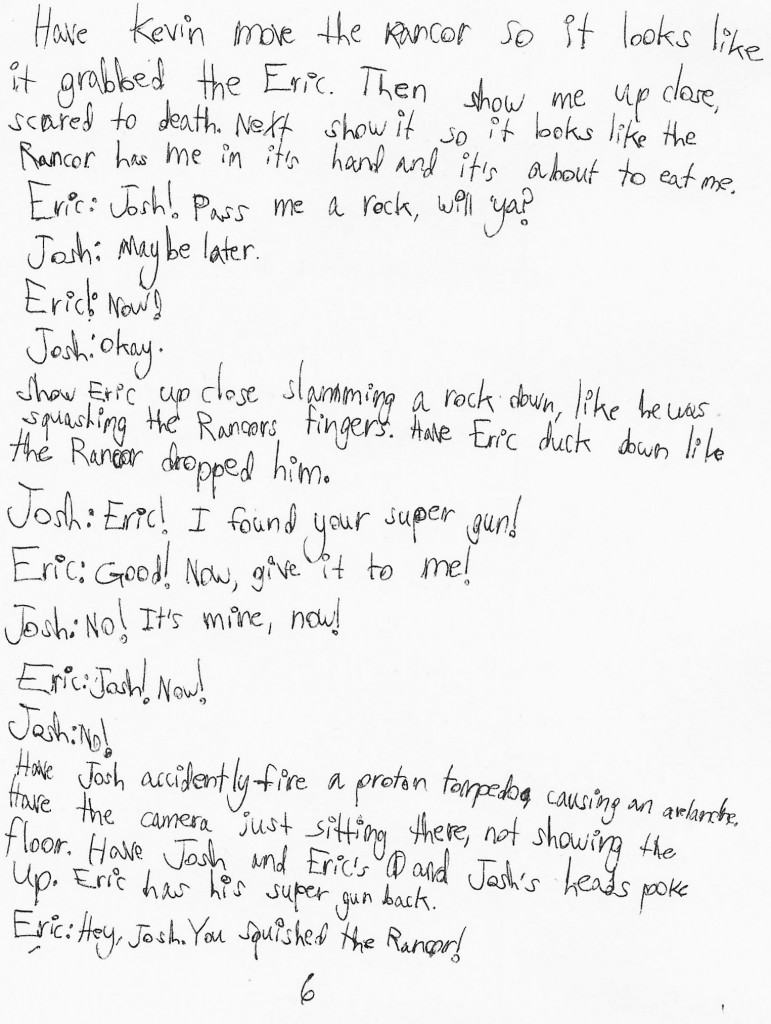 Have Kevin move the Rancor so it looks like
it grabbed the Eric. Then show me up close,
scared to death. Next show it so it looks like the
Rancor has me in it's hand and it's about to eat me.
Eric: Josh! Pass me a rock, will ya?
Josh: Maybe later.
Eric: Now!
Josh: Okay.
Show Eric up close slamming a rock down, like he was
squashing the Rancors fingers. Have Eric duck down like
the Rancor dropped him.
Josh: Eric! I found your super gun!
Eric: Good! Now, give it to me!
Josh: No! It's mine, now!
Eric: Josh! Now!
Josh: No!
Have Josh accidently fire a proton torpedo, causing an avelanche.
Have the camera just sitting there, not showing the
floor. Have Josh and Eric's and Josh's heads poke
up. Eric has his super gun back.
Eric: Hey, Josh. You squished the Rancor!
6